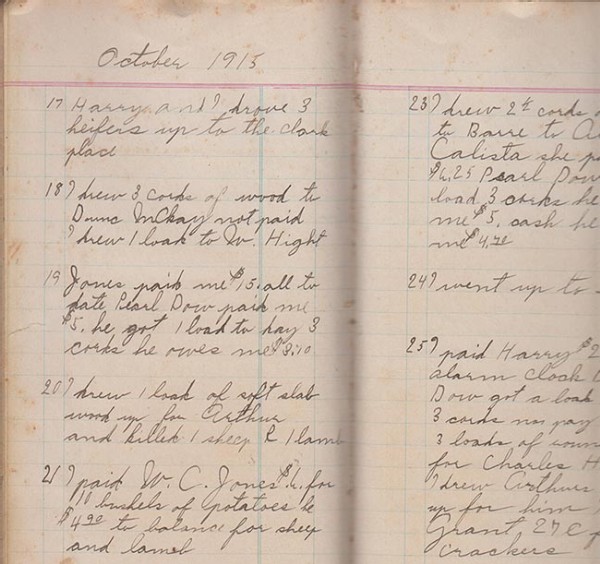 October 1915
17 Harry and I drove 3
heifers up to the clark
place
18 I drew 3 cords of wood to
Dunc McKay not paid
I drew 1 load to W. Hight
19 Jones paid me $15. all to
date Pearl Dow paid me
$5. he got 1 load to day 3
cords he owes me $3.10
20 I drew 1 load of soft slab
wood up for Arthur
and killed 1 sheep & 1 lamb
21 I paid W. C. Jones $6. for
10 bushels of potatoes he
$4.90 to balance for sheep
and lamb
23 I drew 2 cords
to Barre to
Calista she
$6.25 Pearl Dow
load 3 cords he
me $5. cash he
me $4.70
24 I went up to
25 I paid Harry $2
alarm clock
Dow got a load
3 cords no pay
3 loads of
for Charles H
I drew Arthurs
up for him
Grant, 27 C
crackers